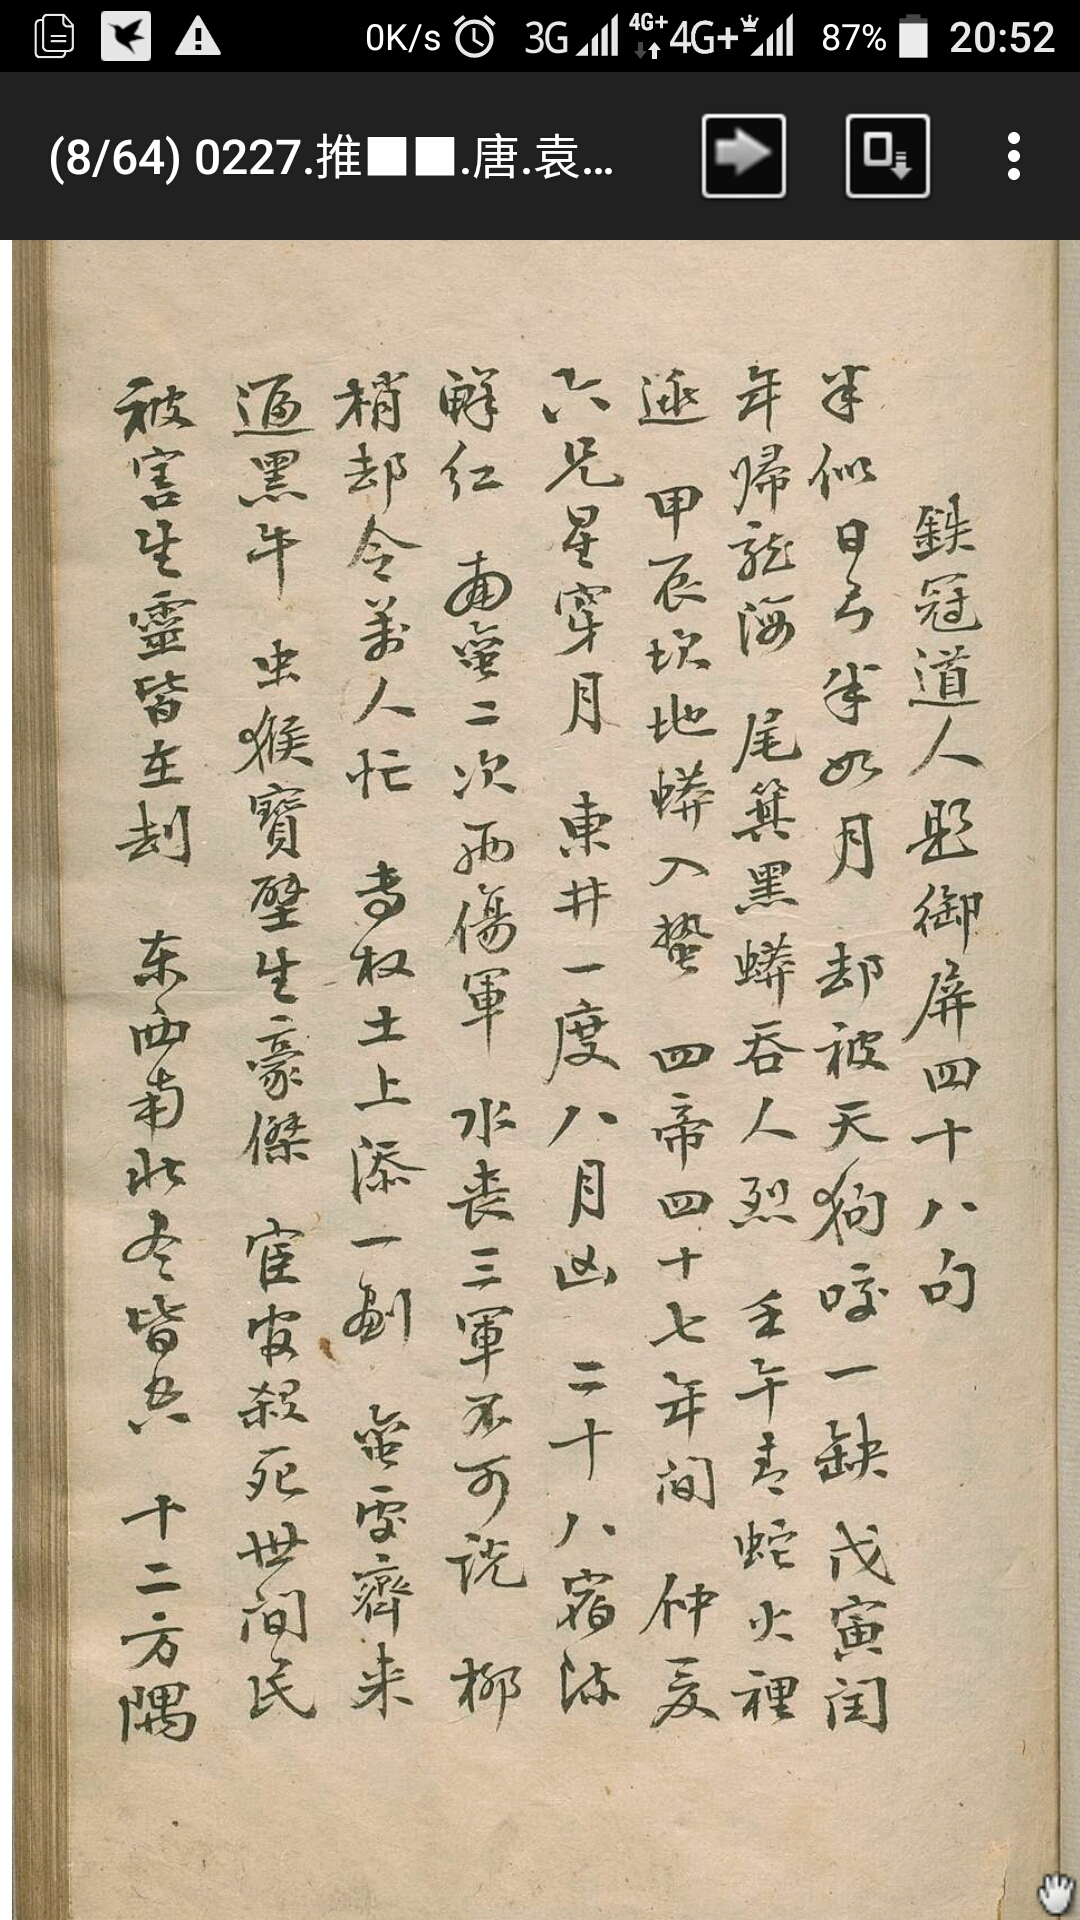 0K/s 3G 4G+ 4G+ 87% 20:52
(8/64) 0227.推■■.唐.袁...
鉄冠道人題御屏四十八句
半似日弓半如月 却被天狗咬一缺 戊寅闰
年歸龍海 尾箕黑蟒吞人烈 壬午青蛇火裡
逃 甲辰坎地蟒入蟄 四帝四十七年间 仲夏
六兄星穿月 東井一度八月凶 二十八宿
鲜红 南蛮二次西傷軍 水丧三軍不可说 柳
梢却令萬人忙 专权土上添一劍 蛮雯齊来
逼黑午 虫猴寶壁生豪傑 宦官殺死世间民
被害生靈皆在刦 东西南北冬皆 十二方隅